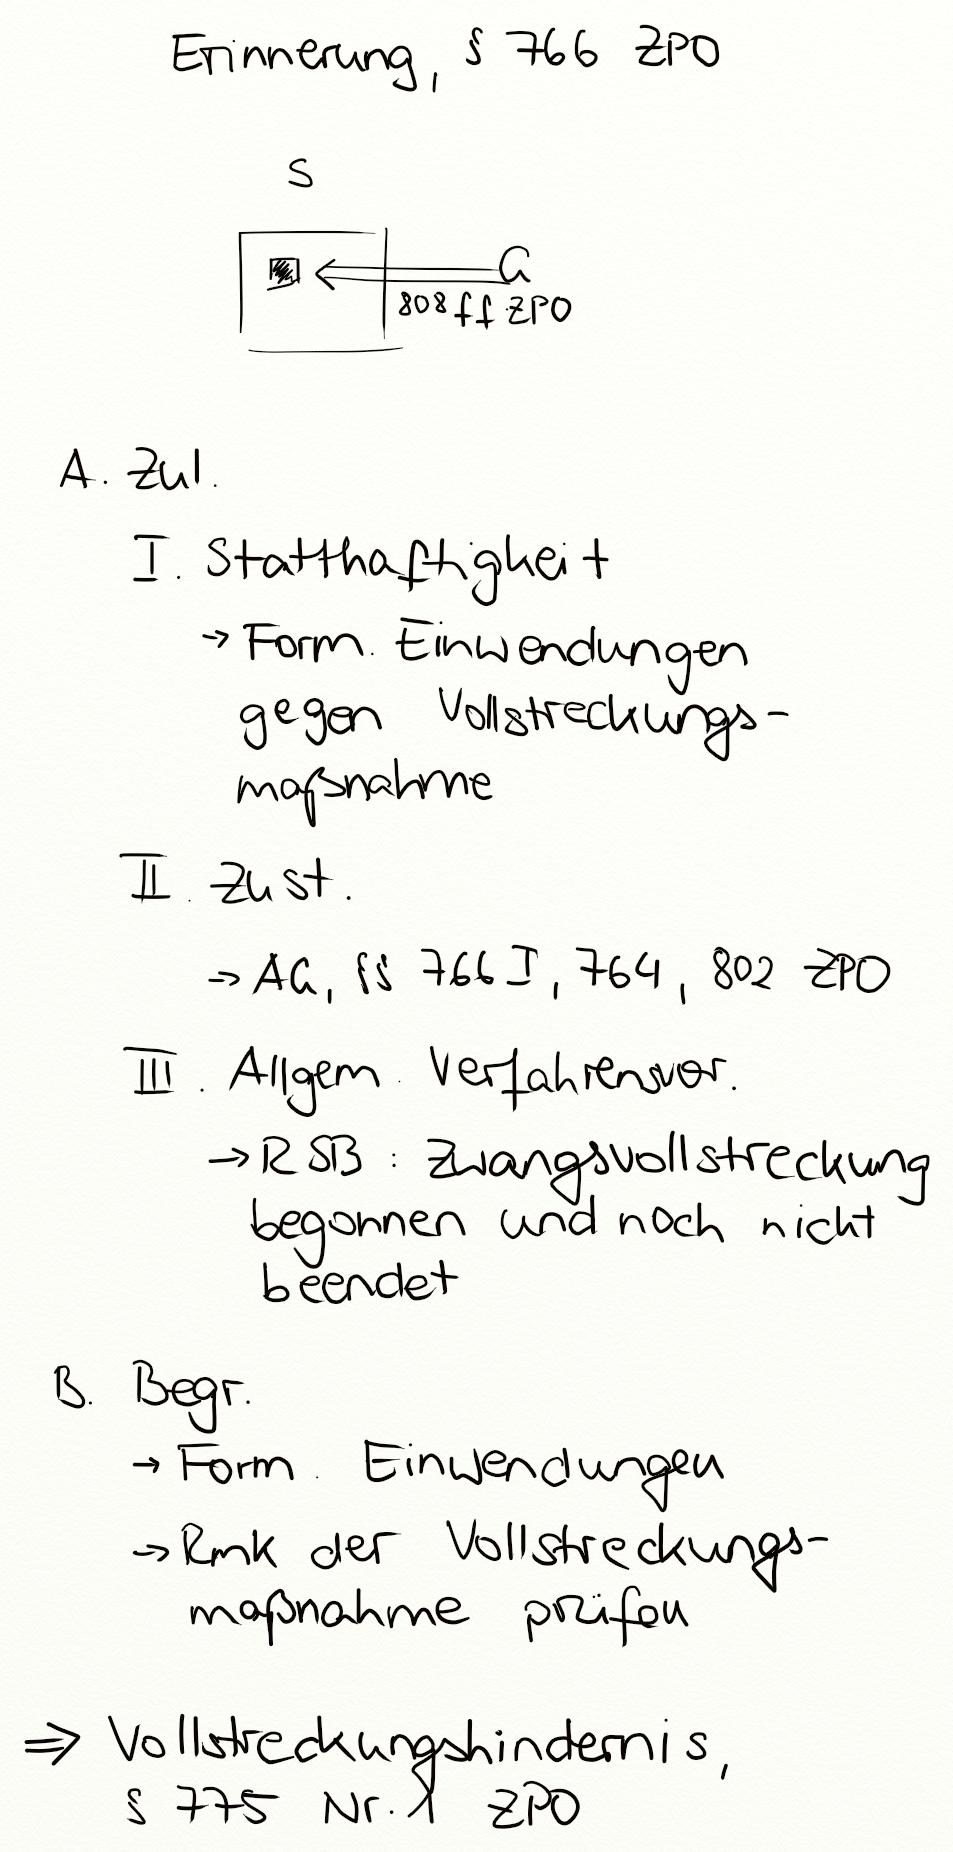 Erinnerung, § 766 ZPO
S
G
808 ff ZPO
A. Zul.
I. Statthaftigkeit
→ Form. Einwendungen
gegen Vollstreckungs-
maßnahme
II. Zust.
→ AG, §§ 766 I, 764, 802 ZPO
III. Allgem. Verfahrensvor.
→ RSB: Zwangsvollstreckung
begonnen und noch nicht
beendet
B. Begr.
→ Form. Einwendungen
→ Rmk der Vollstreckungs-
maßnahme prüfen
⇒ Vollstreckungshindernis,
§ 775 Nr. 1 ZPO